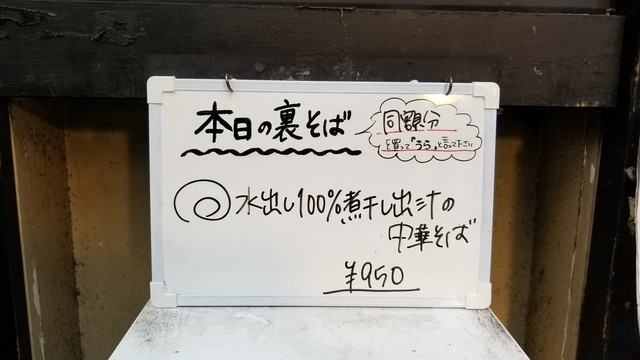 本日の裏そば
同額分
を買って"うら"と言って下さい
水出し100%煮干し出汁の
中華そば
¥950